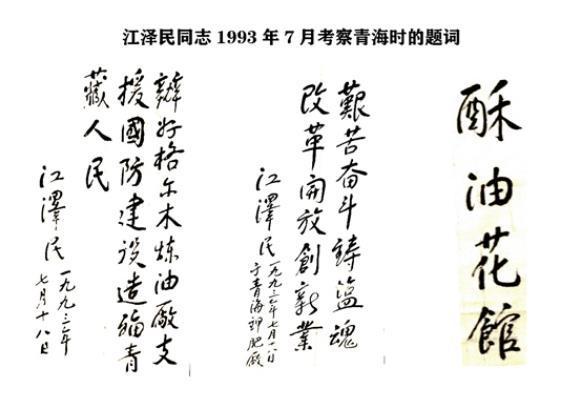 江泽民同志 1993 年 7 月考察青海时的题词
酥油花館
艱苦奋斗鋳盐魂
改革開放創新業
江澤民一九九三年七月十八日
于青海鉀肥厰
辦好格尔木炼油厰支
援國防建設造福青
藏人民
江澤民一九九三年
七月十八日